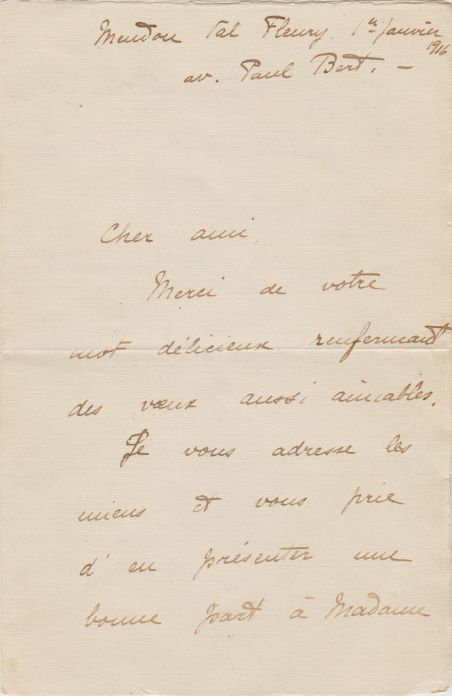 Meudon Val Fleury, 1er Janvier
1916
av. Paul Bert. —
Cher ami,
Merci de votre
mot délicieux renfermant
des vœux aussi aimables.
Je vous adresse les
miens et vous prie
d'en présenter une
bonne part à Madame